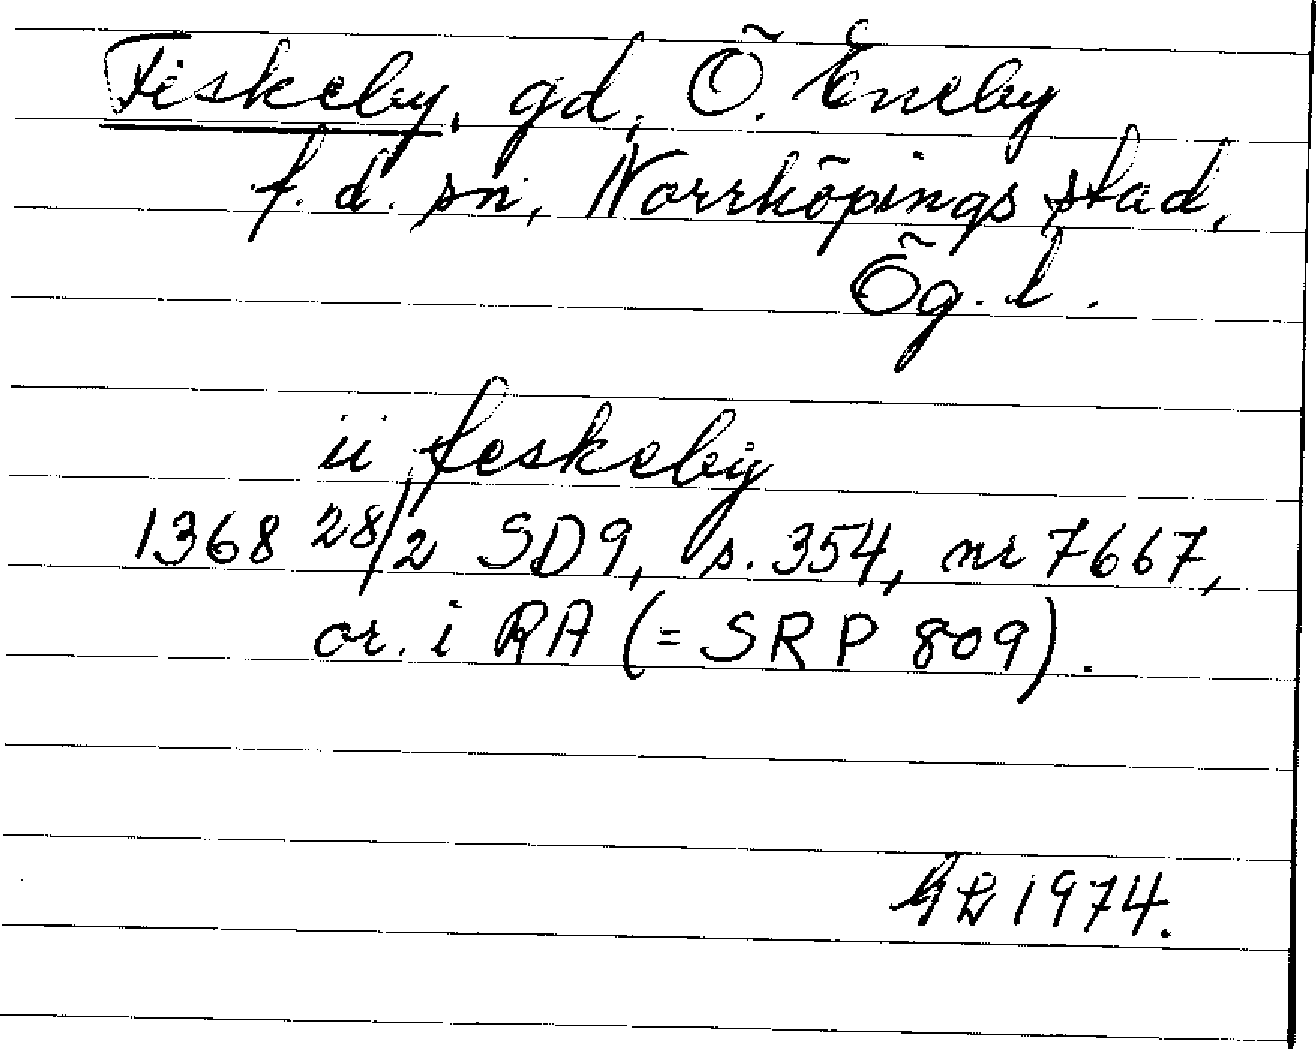 Fiskeby, gd, Ö. Eneby
f. d. sn, Norrköpings stad,
Ög. l.
ii feskeby
1368 28/2 SD9, s. 354, nr 7667,
or. i RA (= SRP 809).
1974.